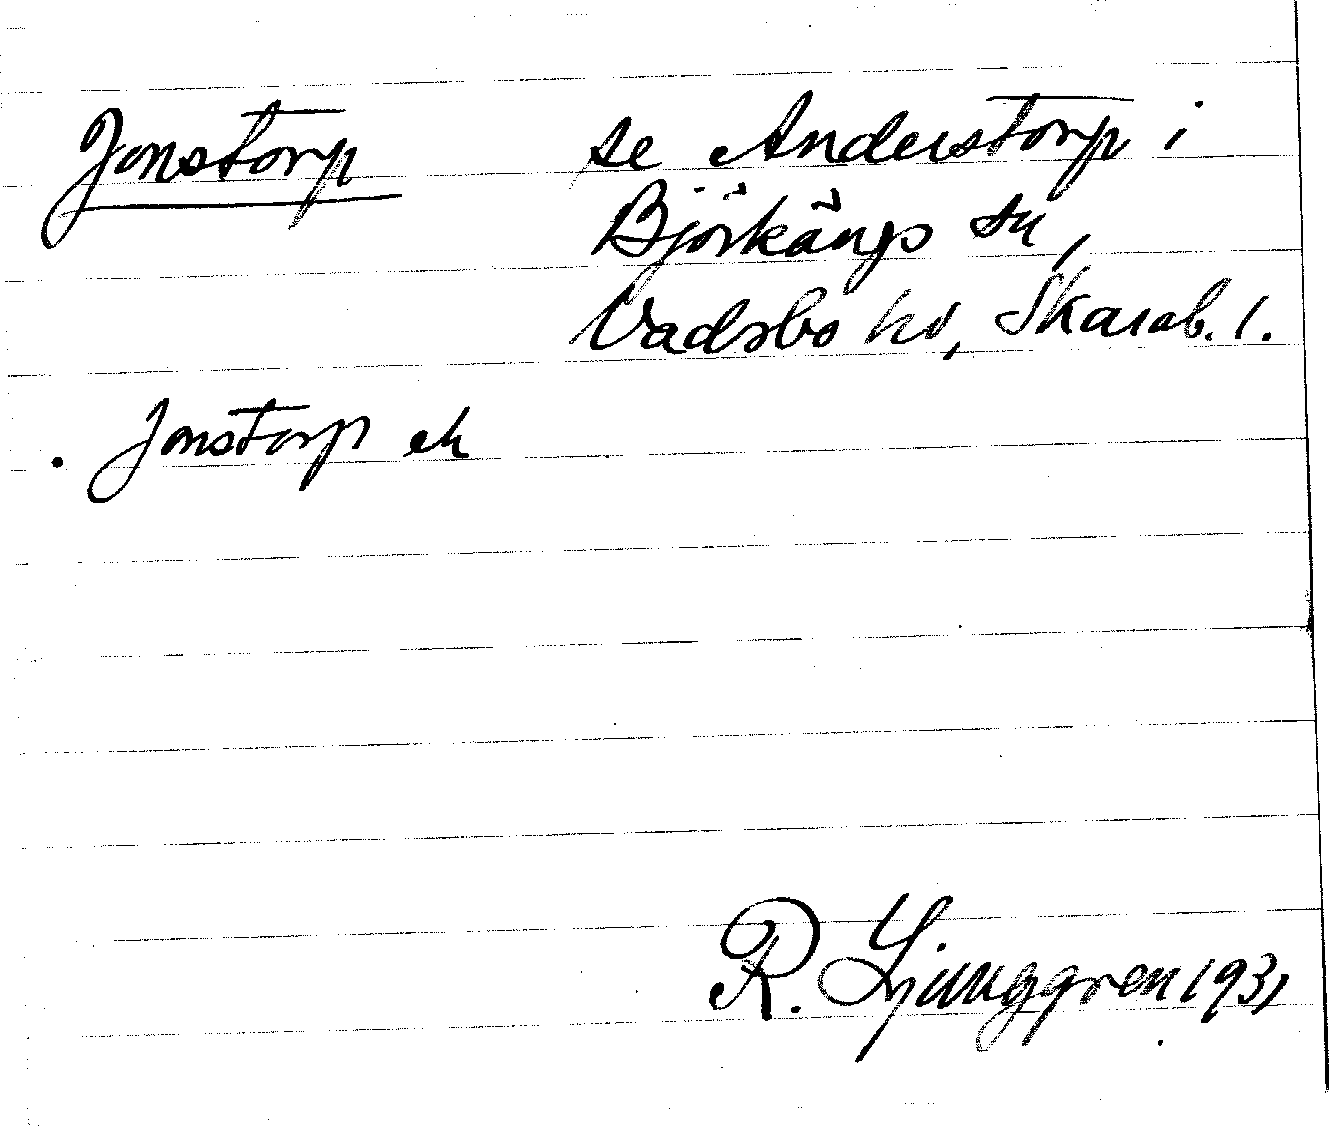 Jonstorp se Anderstorp i
Björkängs sn,
Vadsbo hd, Skarab. l.
. Jonstorp ek
R. Ljunggren 1931